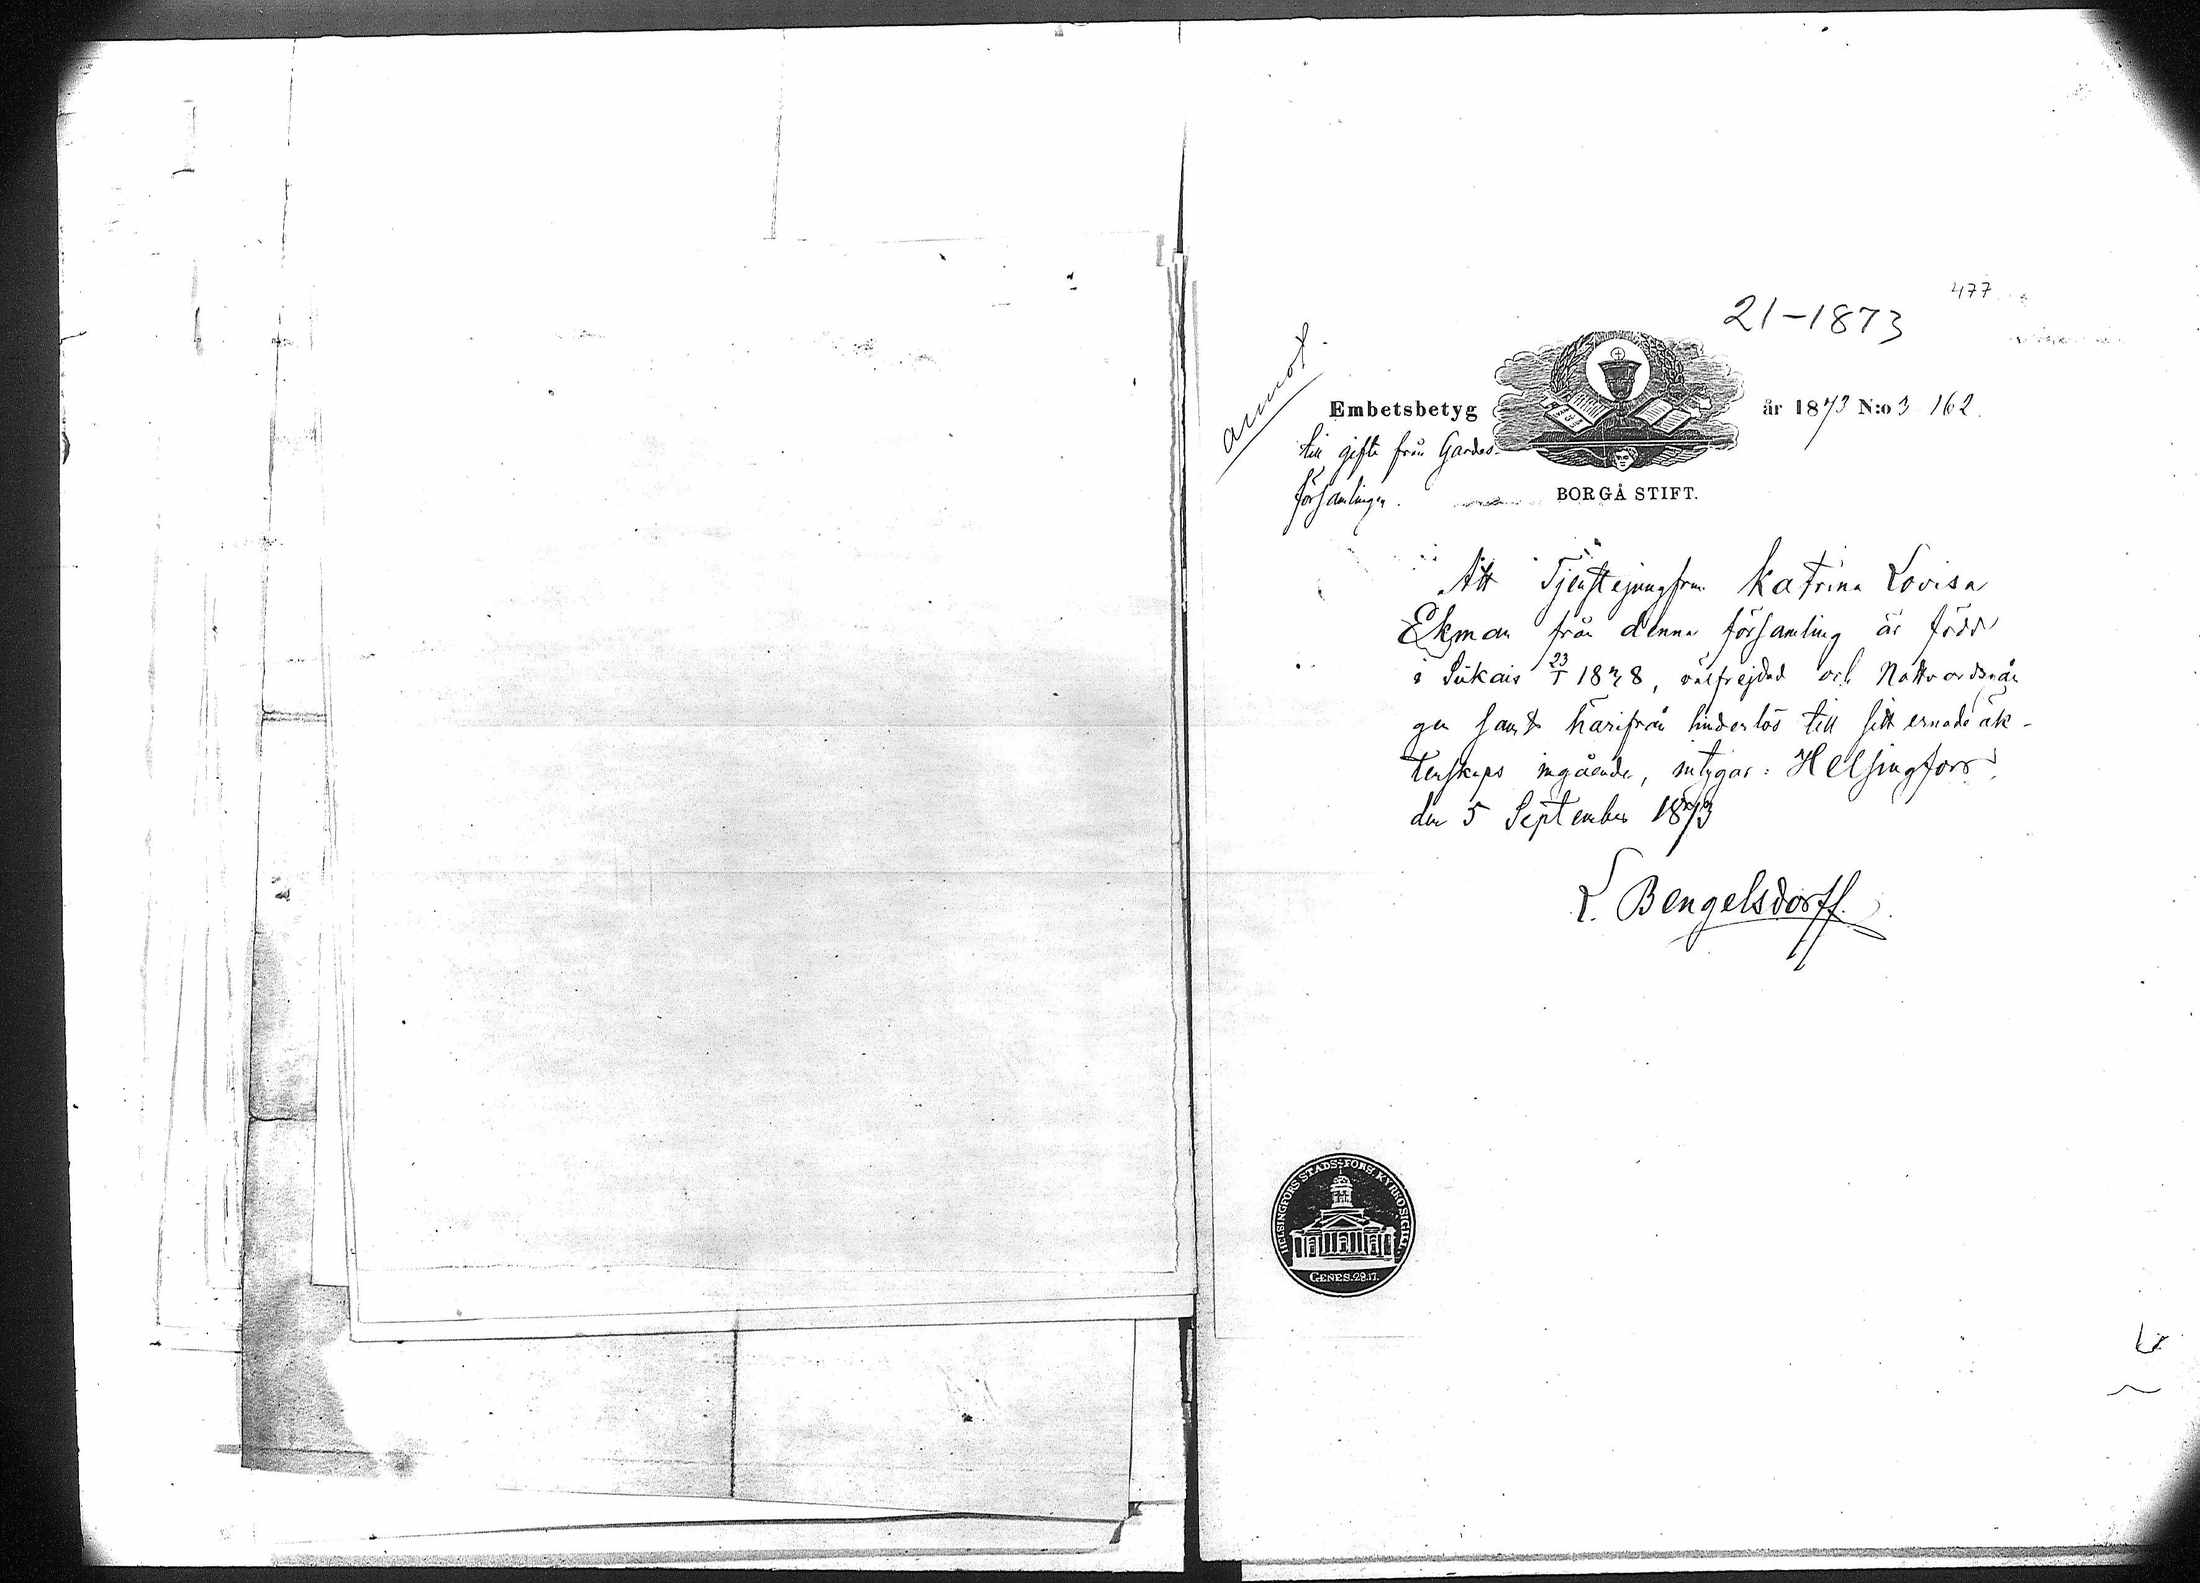 477
21-1873
annot.
Embetsbetyg år 1873 N:o 3 162.
till gifte från Gardes-
församlingen.
BORGÅ STIFT.
Att Tjenstejungfrun Katrina Lovisa
Ekman från denna församling är född
i 23/1 1848, välfrejdad och Nattvardsvän
gen samt härifrån hinderlös till sitt ernade äk-
tenskaps ingående, intygar: Helsingfors
den 5 September 1873
L. Bengelsdorff.
HELSINGFORS STADS-FÖRS. KYRKOSIGILL.
GENES. 28.17.